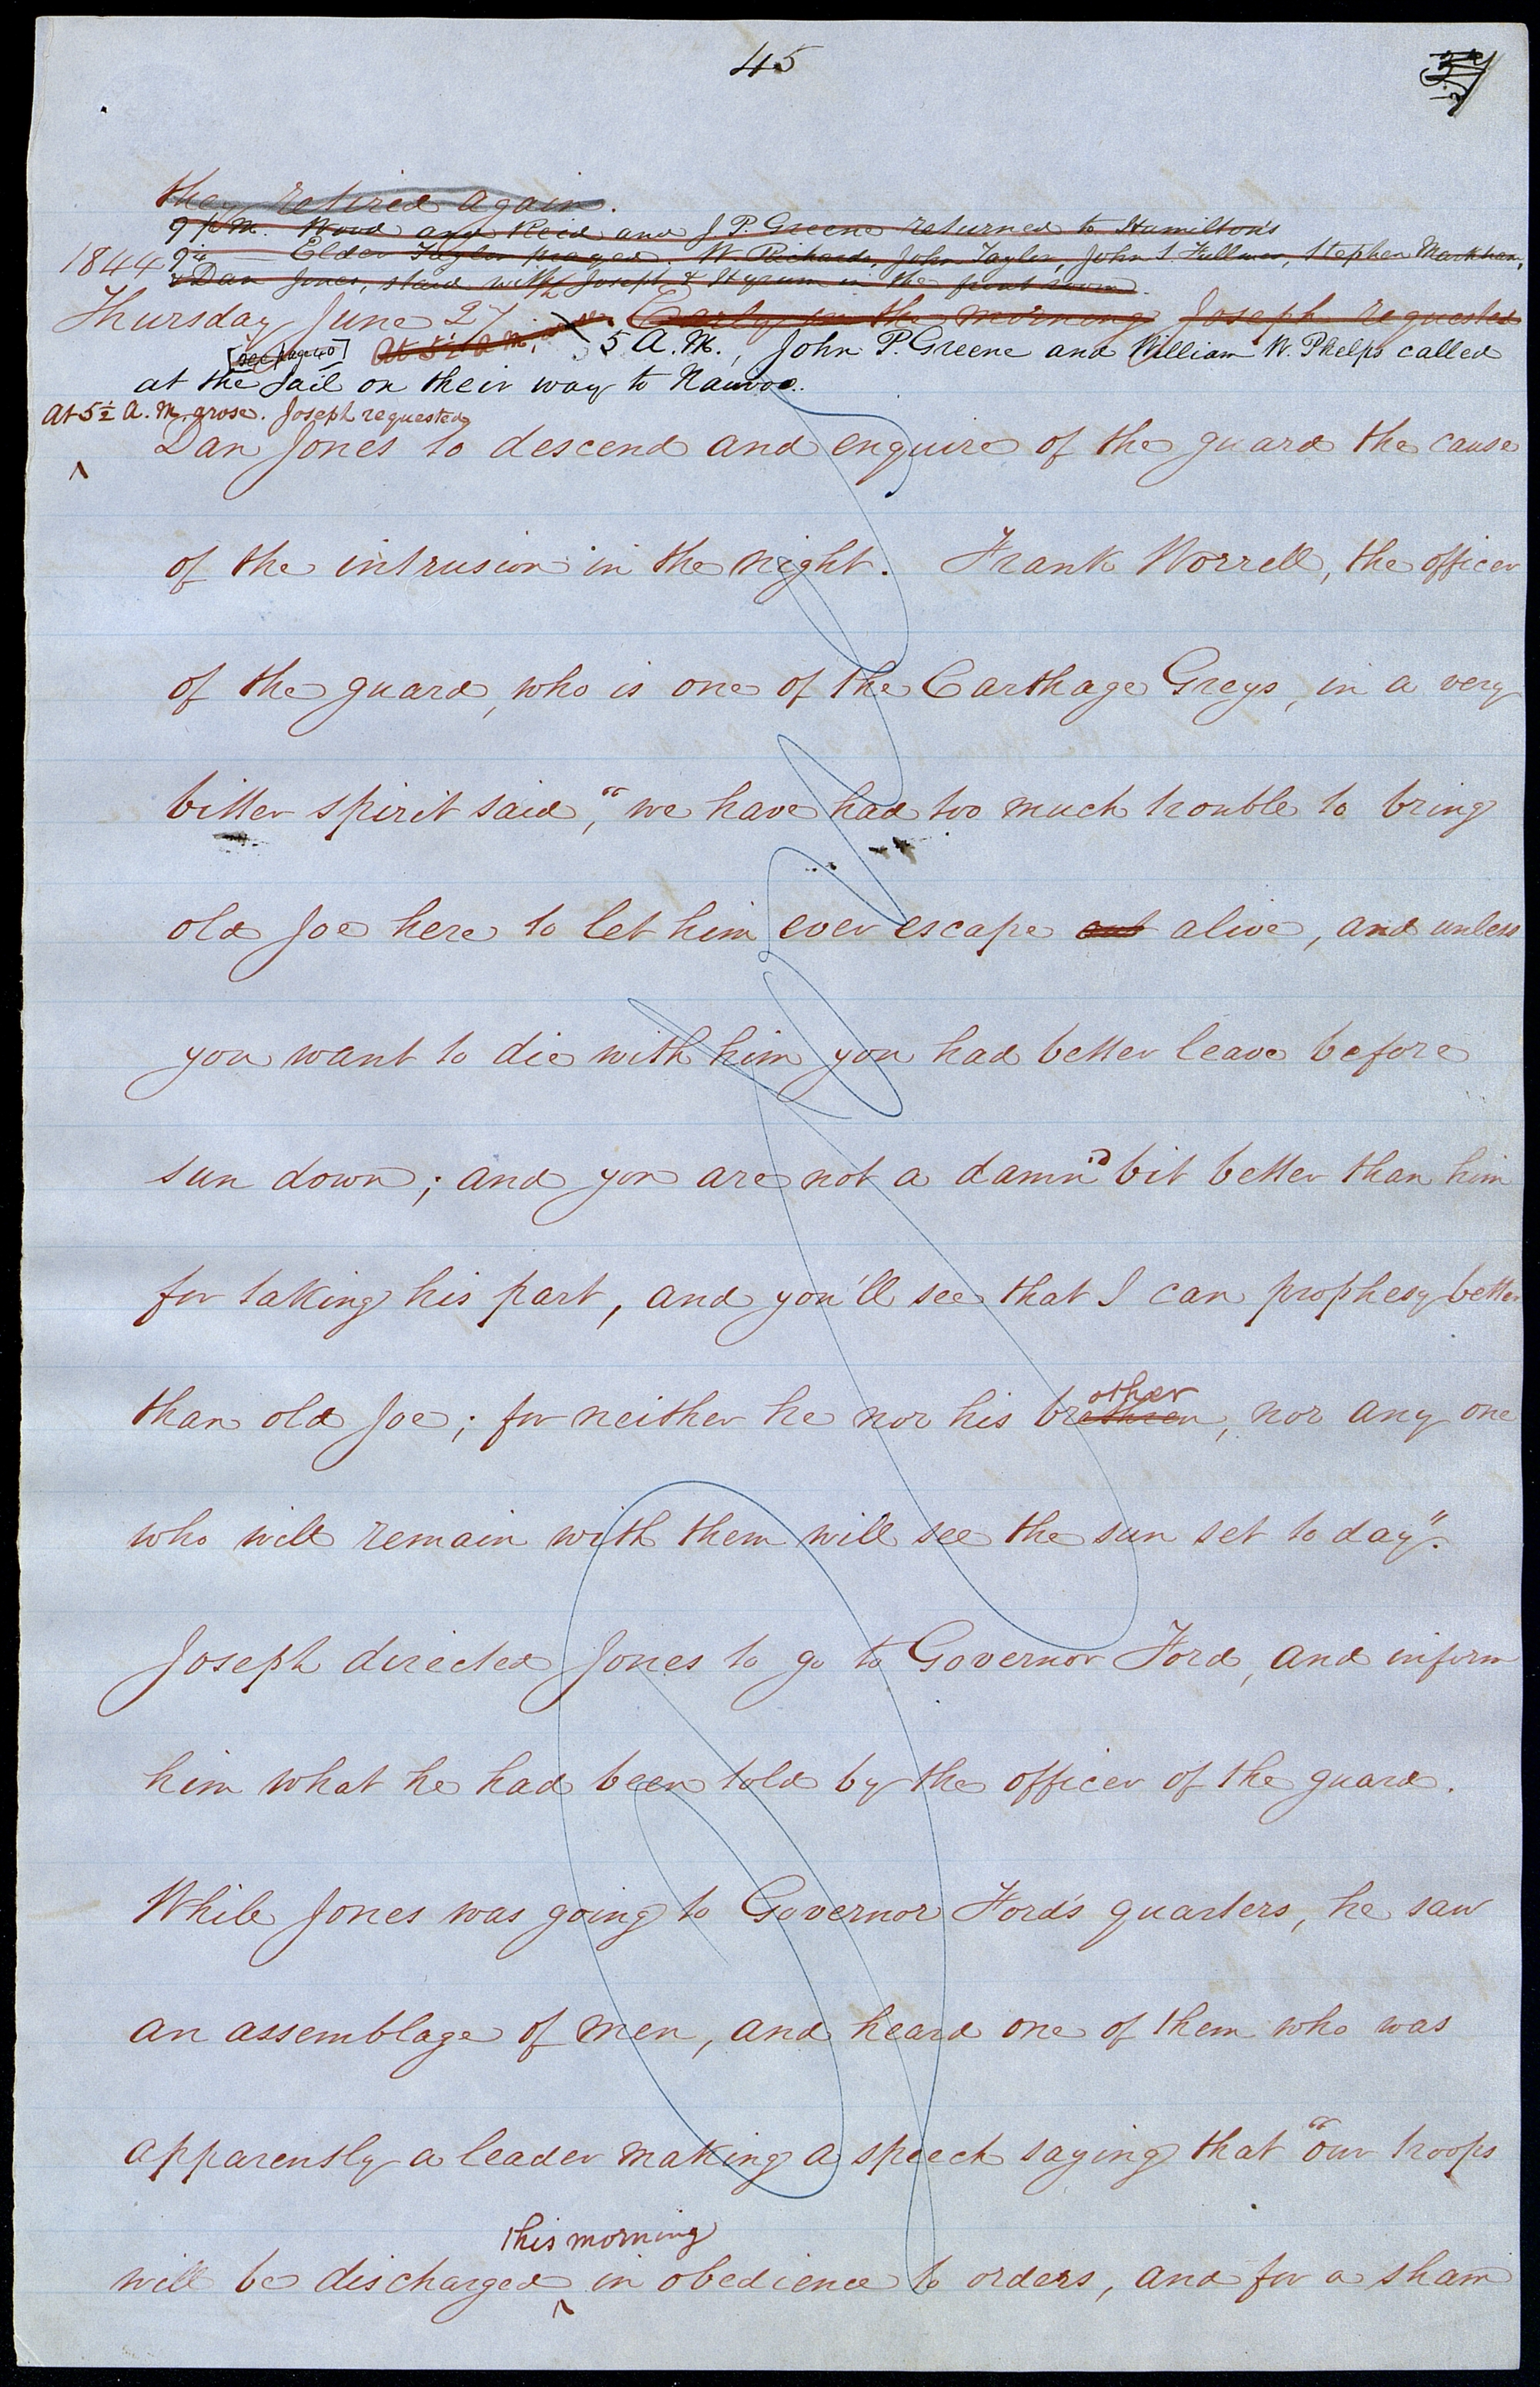 45
they retired again.
9 P.M. Wood and Reid and J P. Greene returned to Hamilton's
9¼ — Elder Taylor prayed. W. Richards, John Taylor, John S Fullmer, Stephen Markham,
1844
& Dan Jones, staid with Joseph & Hyrum in the front room.
Thursday June 27 Early in the morning Joseph requested
[see page 40] At 5½ A M, arose. 5 A.M., John P. Greene and William W. Phelps called
at the Jail on their way to Nauvoo.
At 5½ A.M. arose. Joseph requested
Dan Jones to descend and enquire of the guard the cause
of the intrusion in the night. Frank Worrell, the officer
of the guard, who is one of the Carthage Greys, in a very
bitter spirit said, "we have had too much trouble to bring
old Joe here to let him ever escape out alive, and unless
you want to die with him you had better leave before
sun down; and you are not a damn'd bit better than him
for taking his part, and you'll see that I can prophesy better
other
than old Joe; for neither he nor his brethren, nor any one
who will remain with them will see the sun set to day".
Joseph directed Jones to go to Governor Ford, and inform
him what he had been told by the officer of the guard.
While Jones was going to Governor Ford's quarters, he saw
an assemblage of men, and heard one of them who was
apparently a leader making a speech saying that "our troops
this morning
will be discharged ^ in obedience to orders, and for a sham